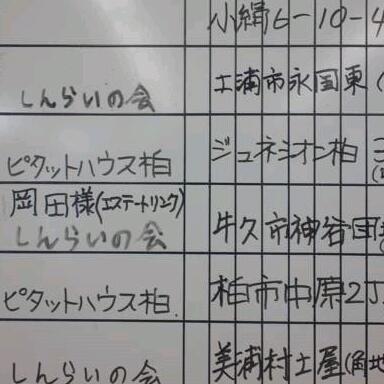 小絹6-10-4
しんらいの会 土浦市永国東(
ピタットハウス柏 ジュネシオン柏
岡田様(エステートリンク)
しんらいの会 牛久市神谷
ピタットハウス柏. 柏市中原2
しんらいの会 美浦村土屋(角地